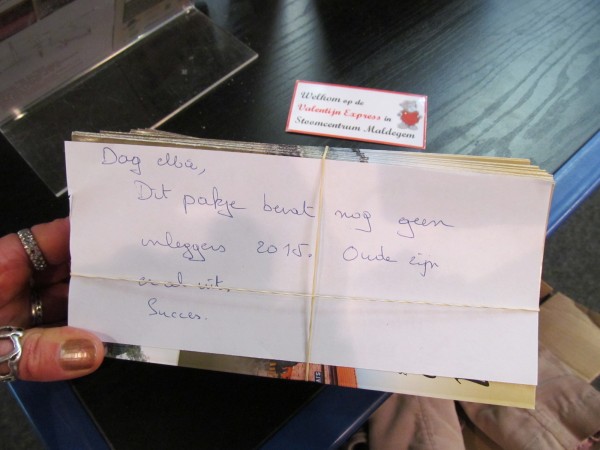 Welkom op de
Valentijn Express in
Stoomcentrum Maldegem
Dag
Dit pakje bevat nog geen
inleggers 2015. Oude zijn
er al uit.
Succes.